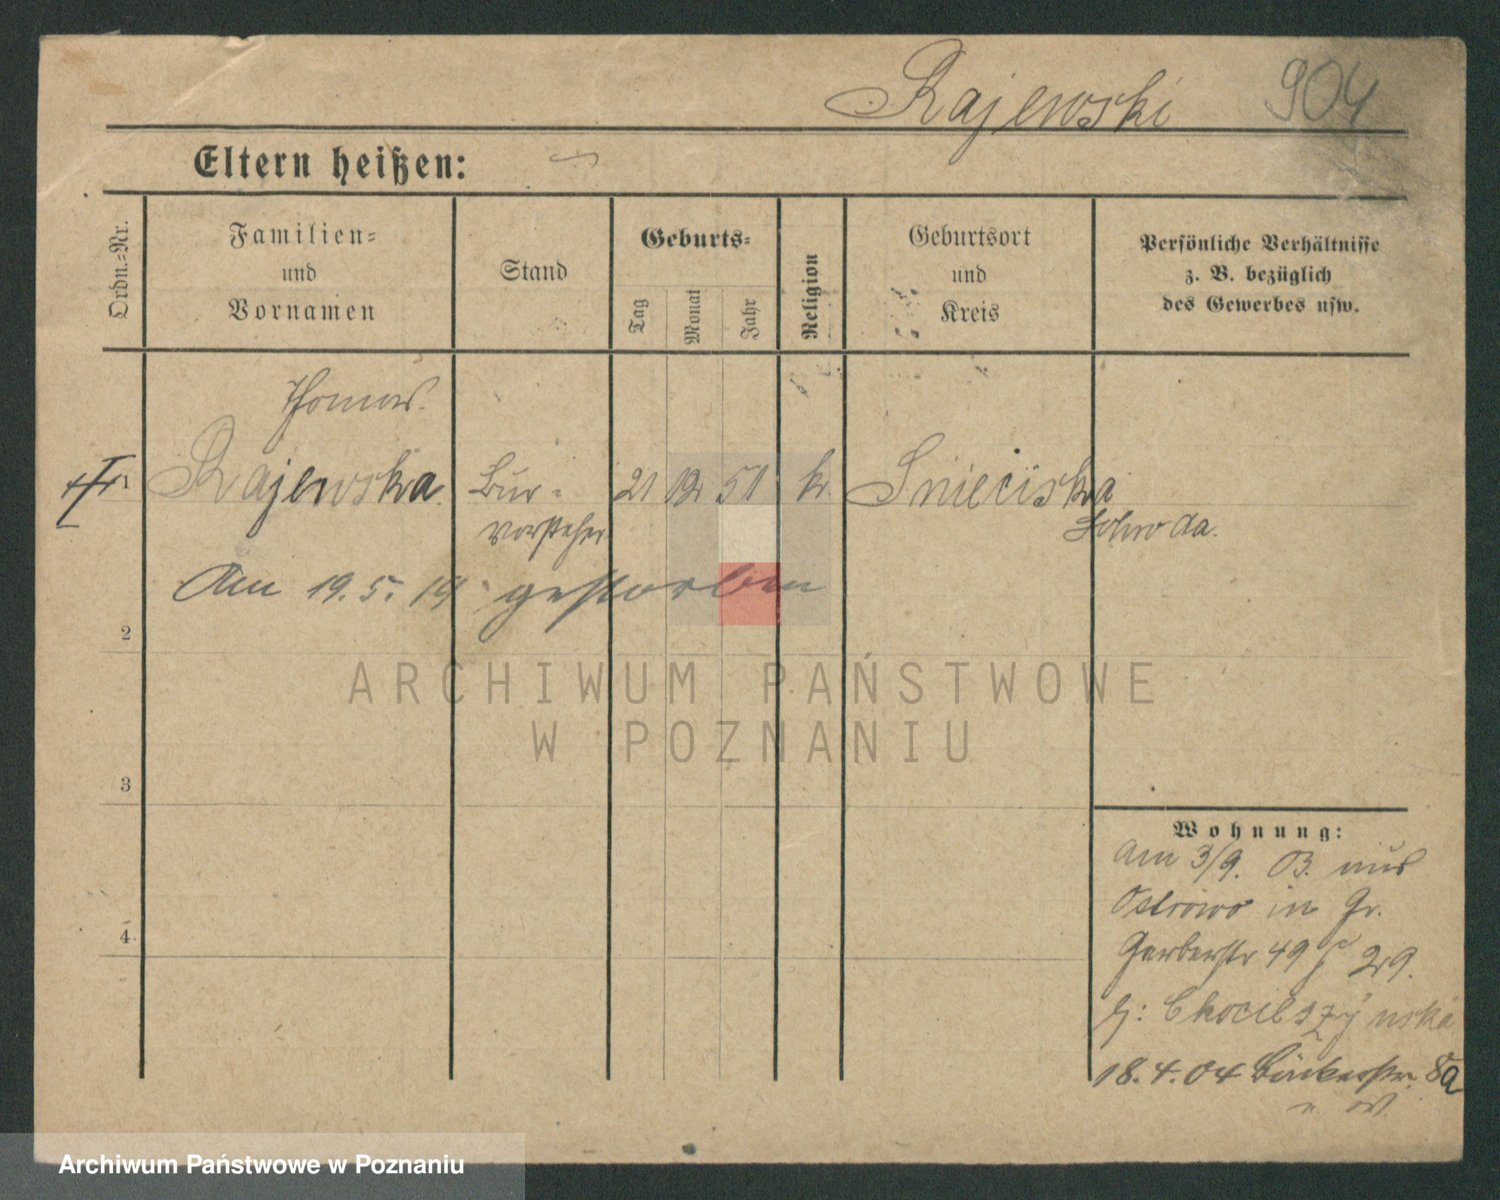 Rajewski 904
Eltern heißen:
Ordn.-Nr.
Familien-
und
Vornamen
Stand
Geburts-
Tag
Monat
Jahr
Religion
Geburtsort
und
Kreis
Persönliche Verhältnisse
z. B. bezüglich
des Gewerbes usw.
Thomas.
1 Rajewski Bur- 21 12 51 k.
vorsteher Schroda.
Am 19. 5. 19 gestorben
2
ARCHIWUM PAŃSTWOWE
W POZNANIU
3
Wohnung:
Am 3/9. 03. aus
Ostrowo in Gr.
4
Gerberstr 49
18.4.04 Bäckerstr. 8a
Archiwum Państwowe w Poznaniu